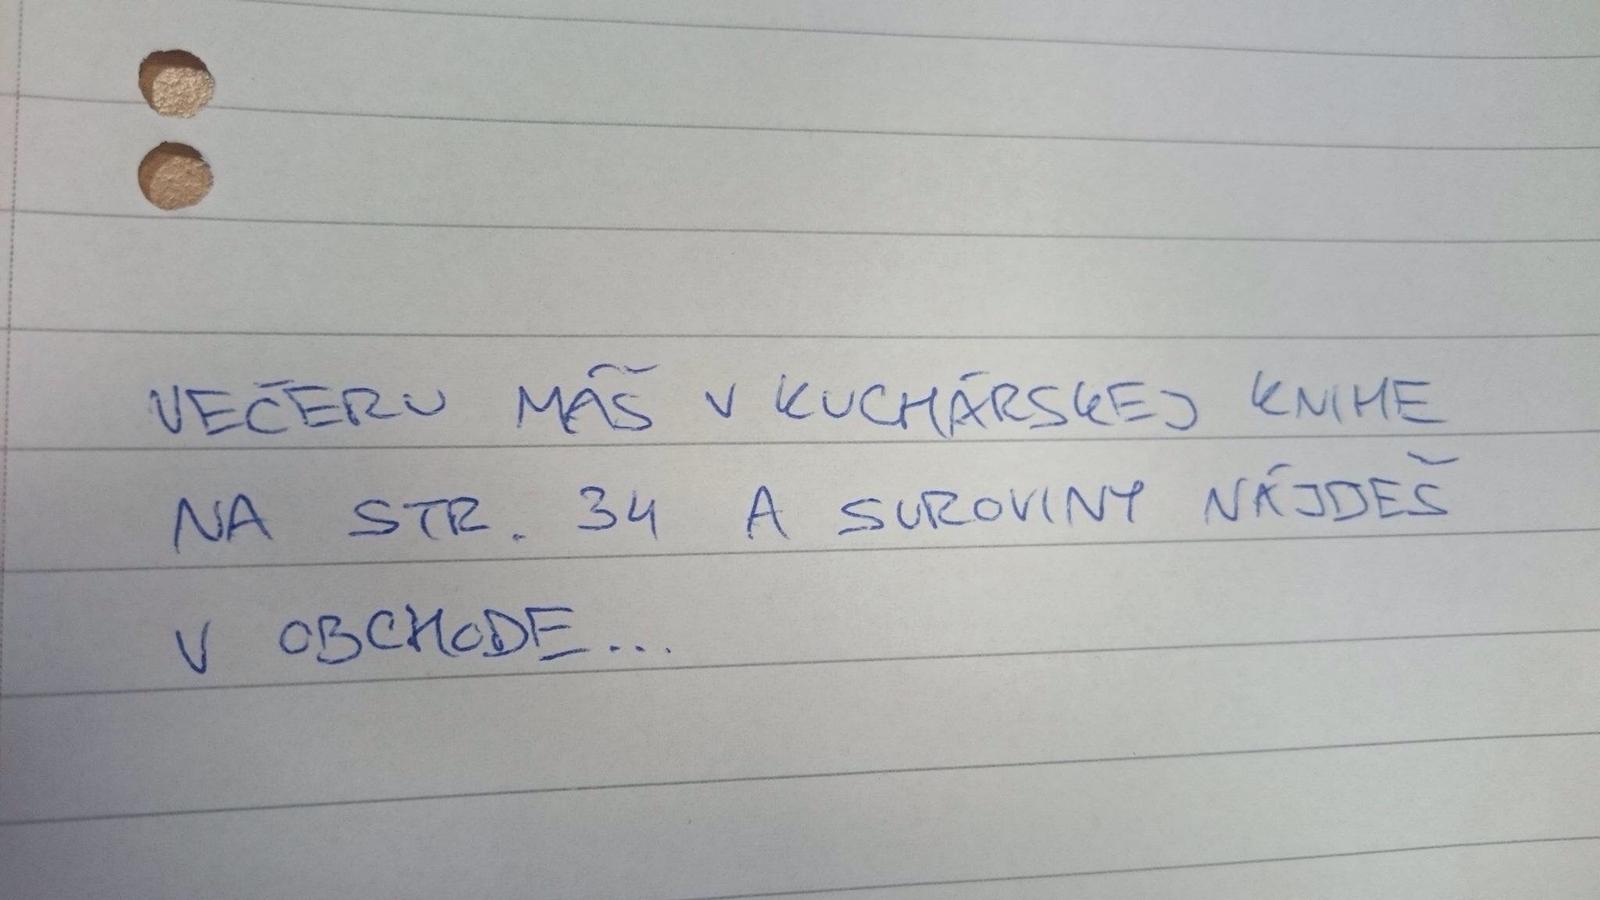 VEČERU MÁŠ V KUCHÁRSKEJ KNIHE
NA STR. 34 A SUROVINY NÁJDEŠ
V OBCHODE...